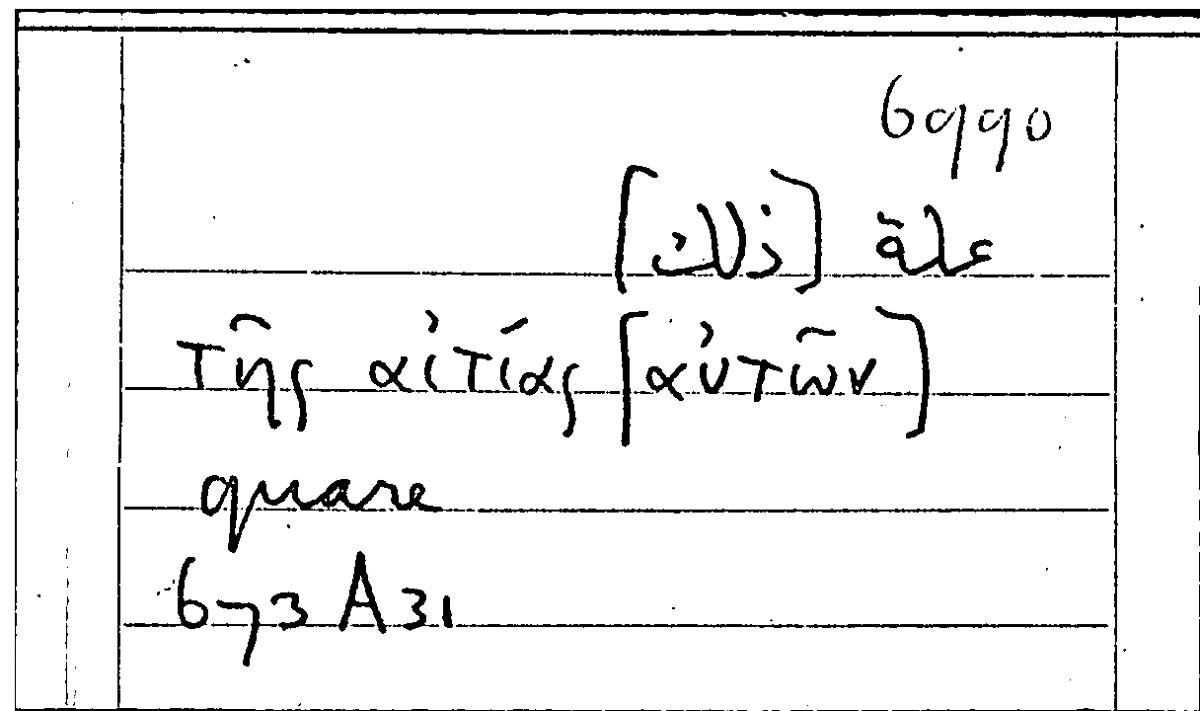 6990
علة [ذلك]
τῆς αἰτίας [αὐτῶν]
quare
673 A 31